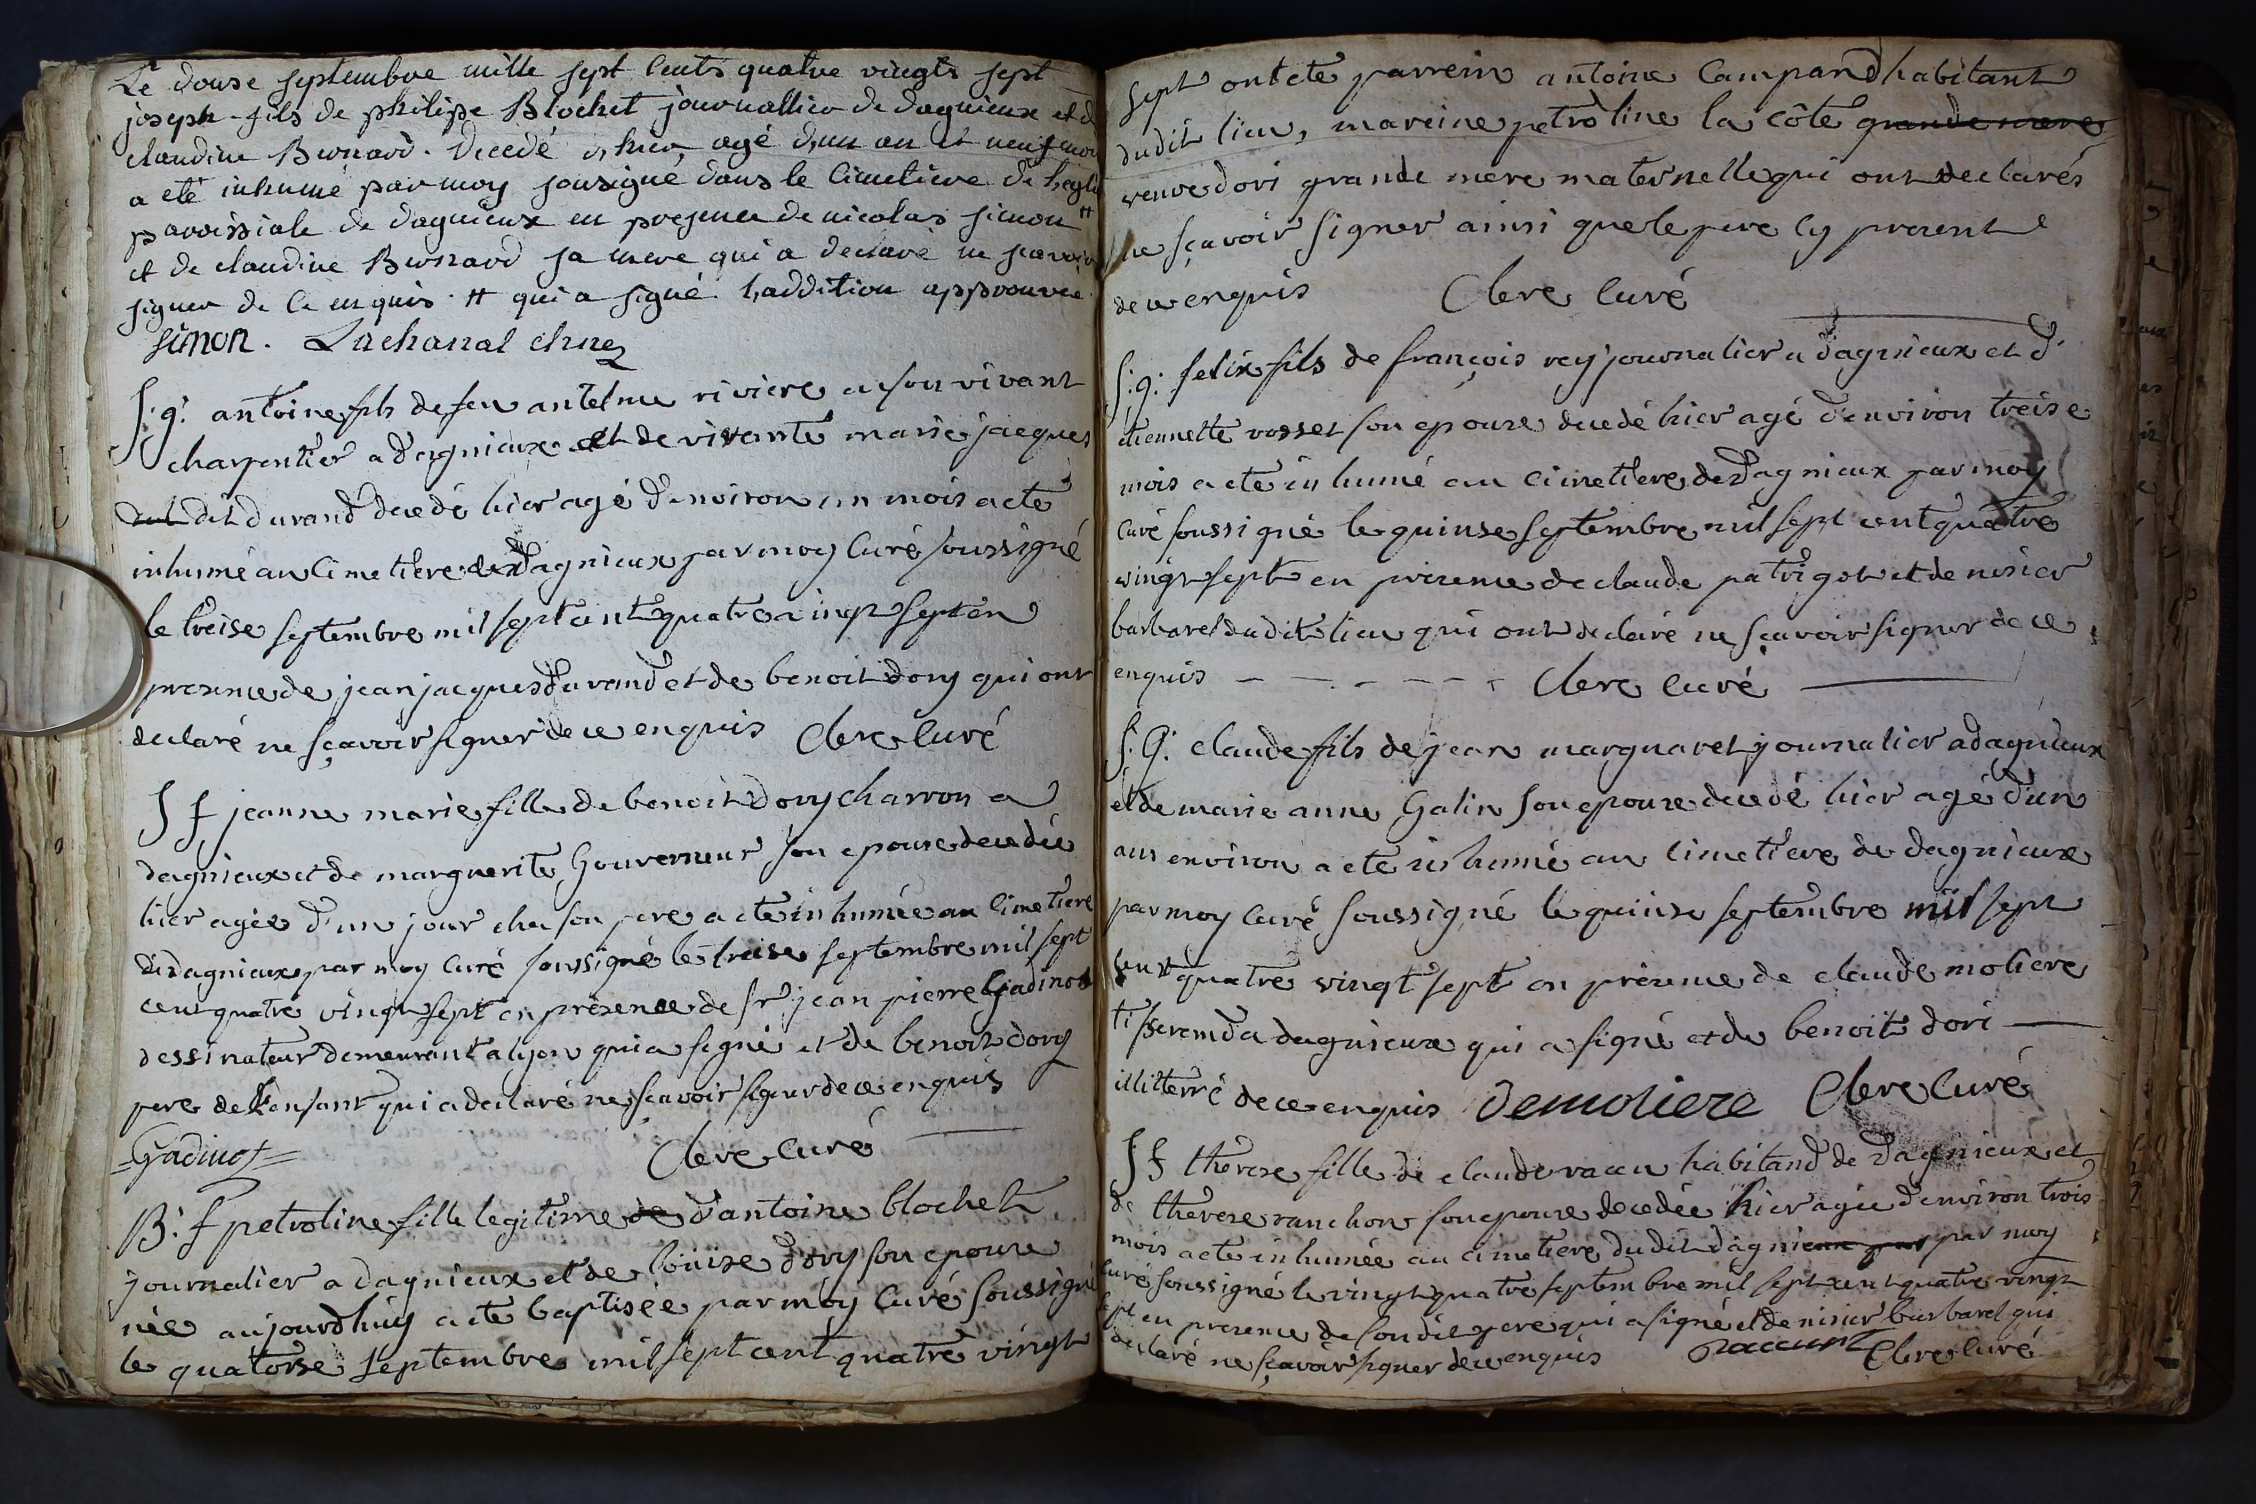 Le douse septembre mille sept cents quatre vingts sept
joseph fils de philipe Blochet journallier de dagnieux et d
claudine Bernard. Decedé d,hier, agé d,un an et neuf mois
a eté inhumé par moy sousigné dans le Cimetiere de l'eglis
paroissiale de dagnieux en presence de nicolas simon #
et de claudine Bernard sa mere qui a declaré ne scavoir
signer de ce enquis. # qui a signé. l,addition approuvée.
simon. Lachanal
S: g: antoine fils de feu antelme riviere a son vivant
charpentier a dagnieux et de vivante marie jacques
dit durand decedé hier agé denviron un mois a ete
inhumé au Cimetiere de dagnieux par moy Curé soussigné
le treise septembre mil sept cent quatre vingt sept en
presence de jean jacques durand et de benoit dory qui ont
declaré ne sçavoir signer de ce enquis Clere Curé
S f jeanne marie fille de benoit dory charron a
dagnieux et de marguerite Gouverneur son epouse decedée
hier agée d'un jour ches son pere a ete inhumée au Cimetiere
de dagnieux par moy Curé soussigné le treise septembre mil sept
cent quatre vingt sept en présence de sr jean pierre Gadinot
dessinateur demeurant a lyon qui a signé et de benoit dory
pere de l'enfant qui a declaré ne sçavoir signer de ce enquis
=Gadinot= Clere Curé
B: f petroline fille legitime de d'antoine blochet
journalier a dagnieux et de louise dory son epouse
née aujourdhuy a ete baptisée par moy Curé soussigné
le quatorse septembre mil sept cent quatre vingt
sept ont ete parrein antoine Campand habitant
dudit lieu, mareine petroline la côte grande mere
veuve dori grande mere maternelle qui ont declarés
ne sçavoir signer ainsi que le pere cy present
de ce enquis Clere Curé
S: g: felix fils de françois rey journalier a dagnieux et d'
etiennette vosset son epouse decedé hier agé d'environ treise
mois a ete inhumé au cimetiere de dagnieux par moy
Curé soussigné le quinse septembre mil sept cent quatre
vingt sept en présence de claude patrigot et de nisier
barbaret dudit lieu qui ont declaré ne sçavoir signer de ce
enquis Clere Curé
S: G: claude fils de jean marguaret journalier a dagnieux
et de marie anne Galin son epouse decedé hier agé d'un
ans environ a ete inhumé au cimetiere de dagnieux
par moy Curé soussigné le quinse septembre mil sept
cent quatre vingt sept en présence de claude moliere
tisserand a dagnieux qui a signé et de benoit dori
illitterré de ce enquis Demoliere Clere Curé
S f therese fille de claude racou habitand de dagnieux et
de therese ranchon son epouse decedée hier agée d'environ trois
mois a ete inhumée au cimetiere dudit dagnieux par par moy
Curé soussigné le vingt quatre septembre mil sept cent quatre vingt
sept en presence de son dit pere qui a signé et de nisier barbaret qui
a declaré ne sçavoir signer de ce enquis Clere Curé